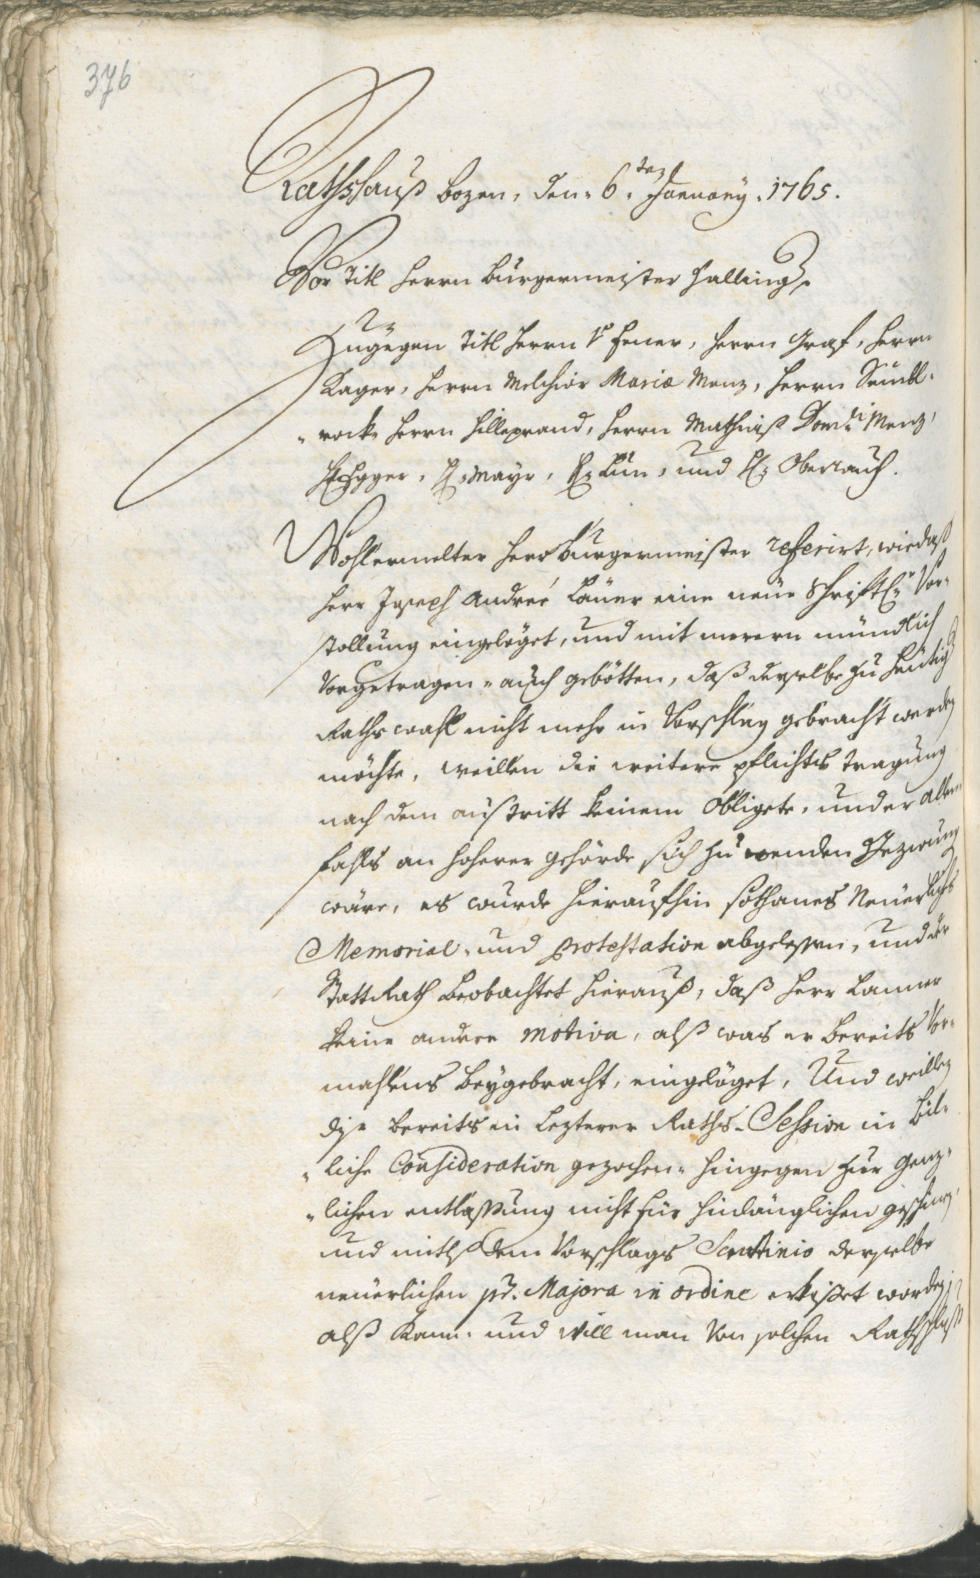 376
Rathshauß Bozen, den 6.ten January. 1765.
Vor Titl Herrn Burgermeister Halling.
Zugegen Titl Herrn v Feuer, Herrn Graf, Herrn
Kager, Herrn Melchior Maria Menz, Herrn Stickl-
rock, Herrn Hilleprand, Herrn Mathias Domci Menz,
H: Egger, H: Mayr, H: Kün, und H: Oberrauch.
Wohlermelter Herr Burgermeister referirt, wie daß
Herr Joseph Andreé Laner eine neüe Schriftl: Vor-
stellung eingelöget, und mit mereren mündlich
Vorgetragen- auch gebötten, daß derselbe zu heütig
Rathswahl nicht mehr in Vorschlag gebracht werden
möchte, weillen die weitere pflichts tragung
nach dem austritt keinem Obligete, und er allen-
fahls an hoherer gehörde sich zu wenden gezwung
wäre, es wurde hieraufhin sothanes Neüerlichs
Memorial- und Protestation abgelesen, und der
Statt Rath beobachtet hierauß, daß Herr Lanner
keine andere motiva, alß was er bereits Vor-
mahlens beygebracht, eingelöget, Und weillen
dise bereits in lezterer Raths-Session in bil-
liche Consideration gezochen- hingegen zur genz-
lichen entlassung nicht für hinlänglichen geschinen,
und mitls dem Vorschlags Scrutinio derselbe
neüerlichen pr. Majora in ordine erkiset worden;
alß kann- und will man von solchen Rathschluß